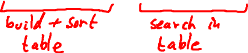 build + sort
table
search in
table